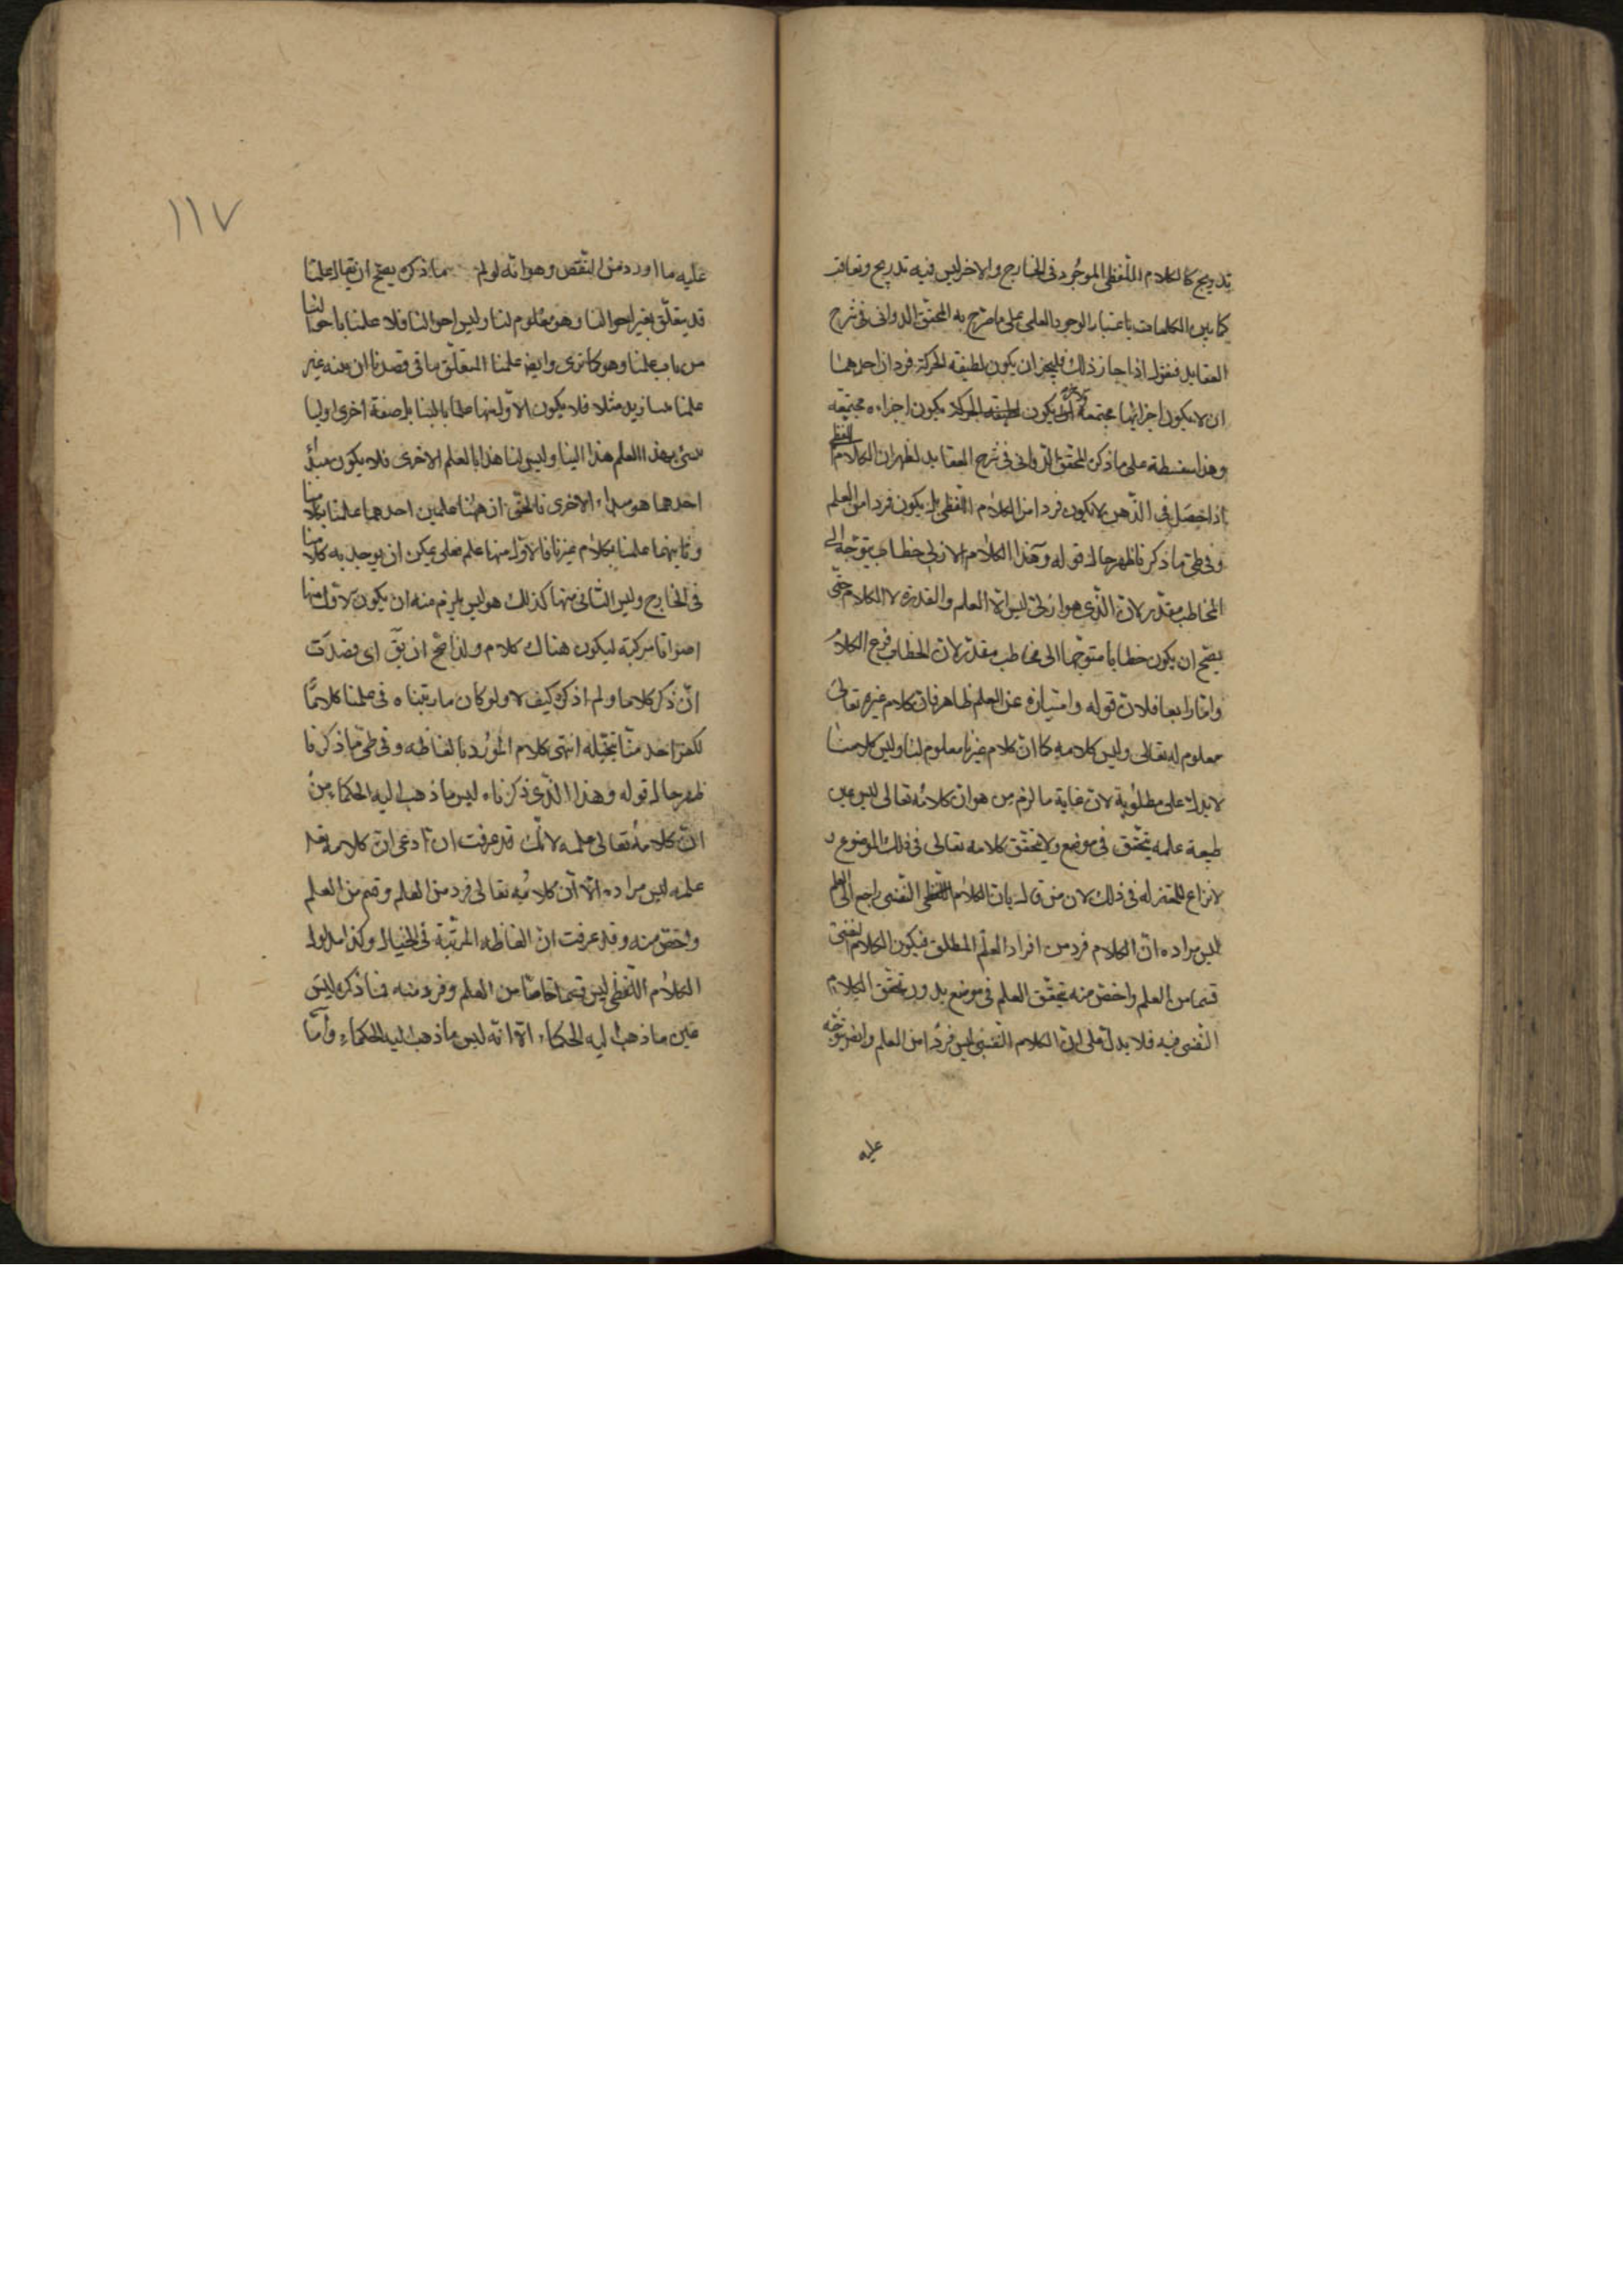 تدريج كالكلام اللفظى الموجود فى الخارج والاخر ليس فيه تدريج وتعاقب
كما بين الكلمات باعتبار الوجود العلمى على ما صرح به المحقق الدوانى فى شرح
العقايد فنقول اذا جاز ذلك فليجز ان يكون لطبيقه الحركة فردان احدهما
ان لا يكون اجزائها مجتمعة يكون اجزاءه مجتمعه
وهذا سفسطة على ما ذكره المحقق الدوانى فى شرح العقايد لظهر ان الكلام اللفظى
اذا حصل فى الذهن لا يكون فردا من الكلام اللفظى بل يكون فردا من العلم
وفى طى ما ذكرنا ظهر حال قوله وهذا الكلام الازلى خطاب يتوجه الى
المخاطب مقدر لان الذى هو ازلى ليس الا العلم والقدرة لا الكلام حتى
يصح ان يكون خطابا متوجها الى مخاطب مقدر لان الخطاب فرع الكلام
واما رابعا فلان قوله وامتيازه عن العلم ظاهر فان كلام غيره تعالى
معلوم له تعالى وليس كلامه كما ان كلام غيرنا معلوم لنا وليس كلامنا
لا يدل على مطلوبه لان غاية ما لزم من هو ان كلامه تعالى ليس عين
طبيعة علمه يتحقق فى موضع ولا يتحقق كلامه تعالى فى ذلك الموضع و
لا نزاع للمعتزله فى ذلك لان من قال بان الكلام النفسى راجع الى العلم
ليس مراده ان الكلام فرد من افراد العلم المطلق فيكون الكلام النفسى
قسما من العلم واخص منه بتحقق العلم فى موضع بدون تحقق الكلام
النفسى فيه فلا يدل على ان الكلام النفسى ليس فردا من العلم وايضا يتوجه
عليه
١١٧
عليه ما اورد من النقص وهو انه لو لم بما ذكره يصح ان يقال علمنا
قد يتعلق بغير احوالنا وهو معلوم لنا وليس احوالنا فلا علمنا باحوالنا
من باب علمنا وهو كما ترى وايضا علمنا المتعلق باقى قصدنا ان بينه غير
علمنا مثلا فلا يكون الاول منها علما بل صفة اخرى اوليا
بهذا العلم هذا الينا وليس لنا هذا بالعلم الاخرى فلا يكون مبدأ
احدهما هو مبداء الاخرى فالحق ان ههنا علمين احدهما علمنا بكلامنا
وثانيهما علمنا بكلام غيرنا فالاول منها علم فعلى يمكن ان يوجد به كلامنا
فى الخارج وليس الثانى منها كذلك هو ليس يلزم منه ان يكون الاول منها
اصواتا مركبة ليكون هناك كلام ولذا صح ان يق اى قصدت
ان ذكر كلاما ولم اذكره كيف لا ولو كان ما رتبناه فى علمنا كلامًا
لكفر احد منا بتخيله انتهى كلام المورد بالفاظه وفى طى ما ذكرنا
ظهر حال قوله وهذا الذى ذكرناه ليس ما ذهب اليه الحكماء من
ان كلامه تعالى علمه لانك قد عرفت ان ادعى ان كلامه تعالى
علمه ليس مراده الا ان كلامه تعالى فرد من العلم وقسم من العلم
واخص منه وقد عرفت ان الفاظه المرتبة فى الخيال وكذا مدلول
الكلام اللفظى ليس قسما خاصا من العلم وفرد منه فما ذكره ليس
عين ما ذهب اليه الحكماء الا انه ليس ما ذهب اليه الحكماء واما